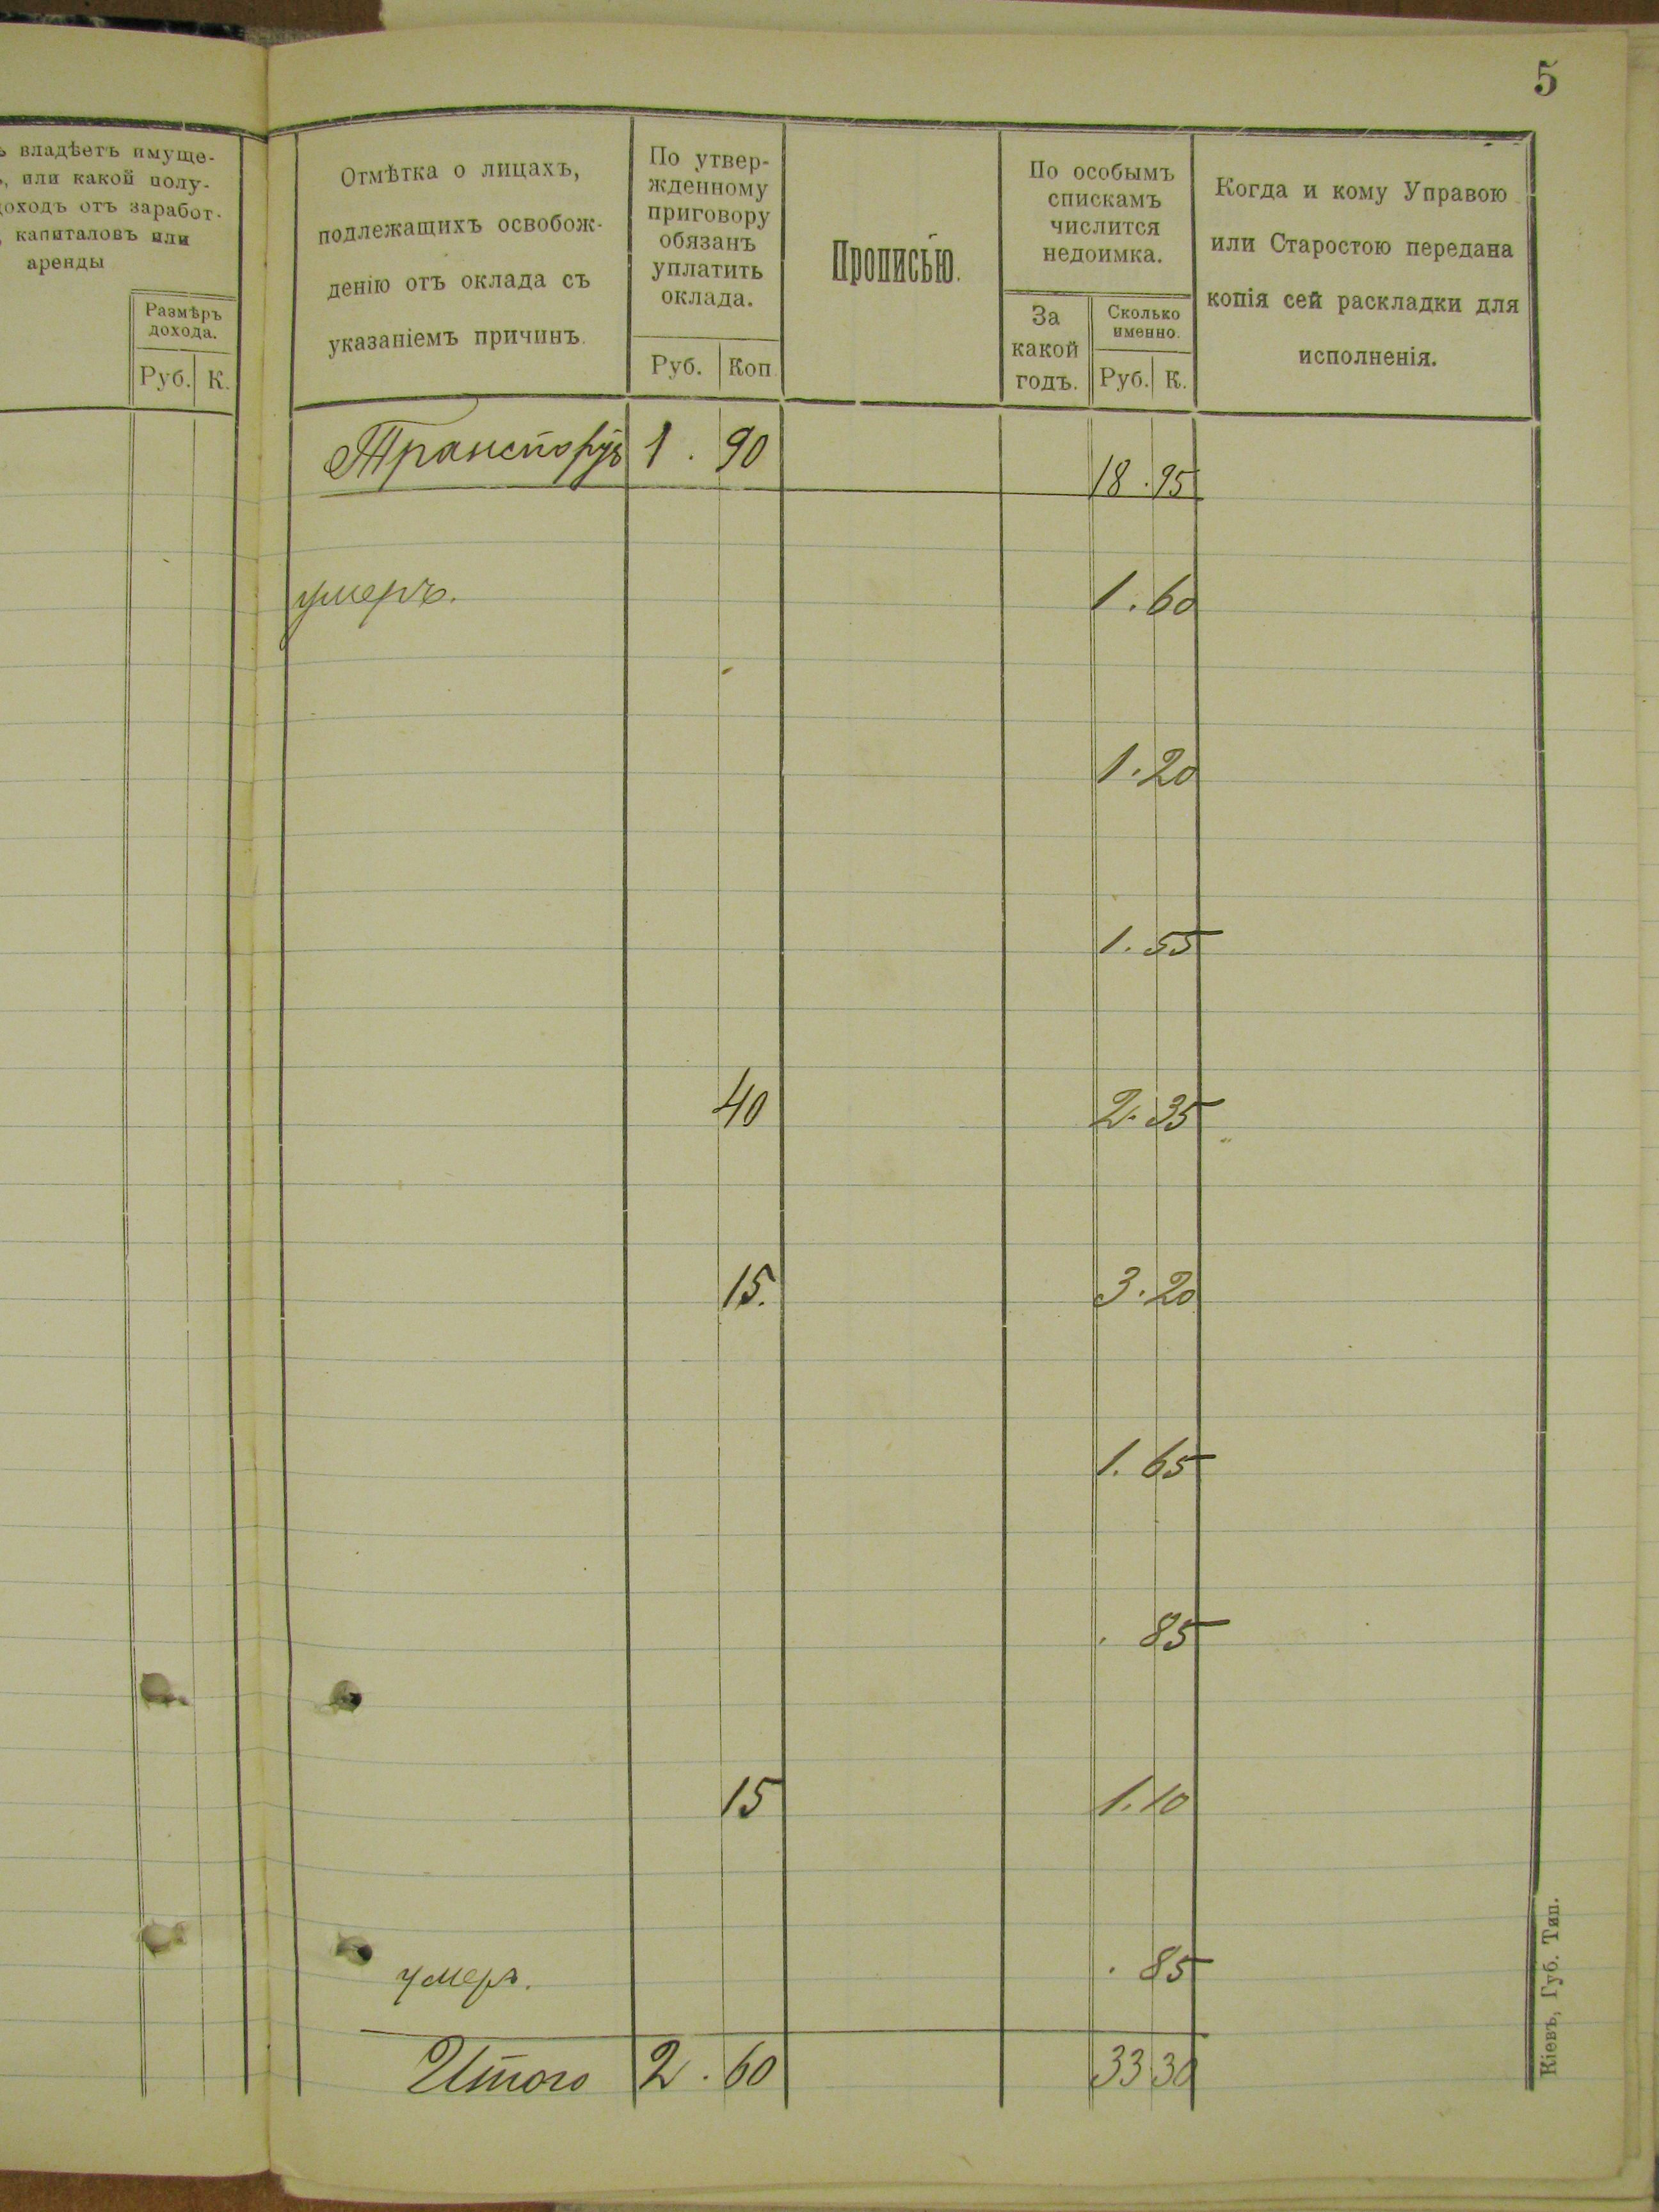 5
ъ владѣетъ имуще-
ъ, или какой полу-
доходъ отъ заработ-
, капиталовъ или
аренды
Размѣръ
дохода.
Руб. К.
Отмѣтка о лицахъ,
подлежащихъ освобож-
денію отъ оклада съ
указаніемъ причинъ.
По утвер-
жденному
приговору
обязанъ
уплатить
оклада.
Руб. Коп.
Прописью.
По особымъ
спискамъ
числится
недоимка.
За
какой
годъ.
Сколько
именно.
Руб. К.
Когда и кому Управою
или Старостою передана
копія сей раскладки для
исполненія.
Транспортъ 1 . 90 18 . 95
умеръ. 1 . 60
1 . 20
1 . 55
40 2 . 35
15. 3 . 20
1 . 65
. 85
15 1 . 10
умеръ. . 85
Итого 2 . 60 33 30
Кіевъ, Губ. Тип.